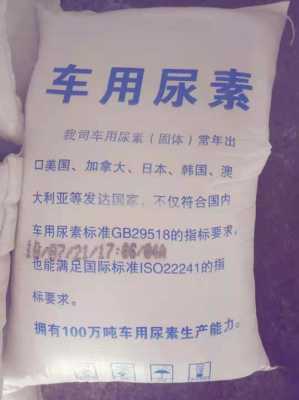 车用尿素
我司车用尿素（固体）常年出
口美国、加拿大、日本、韩国、澳
大利亚等发达国家，不仅符合国内
车用尿素标准GB29518的指标要求，
也能满足国际标准ISO22241的指
标要求。
拥有100万吨车用尿素生产能力。